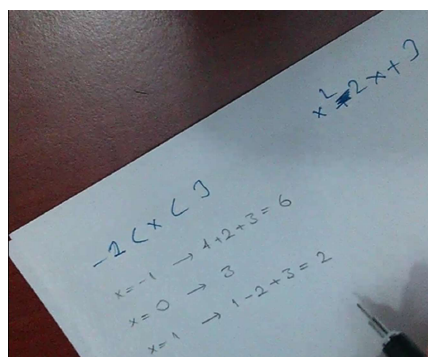 x² - 2x + 3
-1 < x < 3
x = -1 → 1 + 2 + 3 = 6
x = 0 → 3
x = 1 → 1 - 2 + 3 = 2